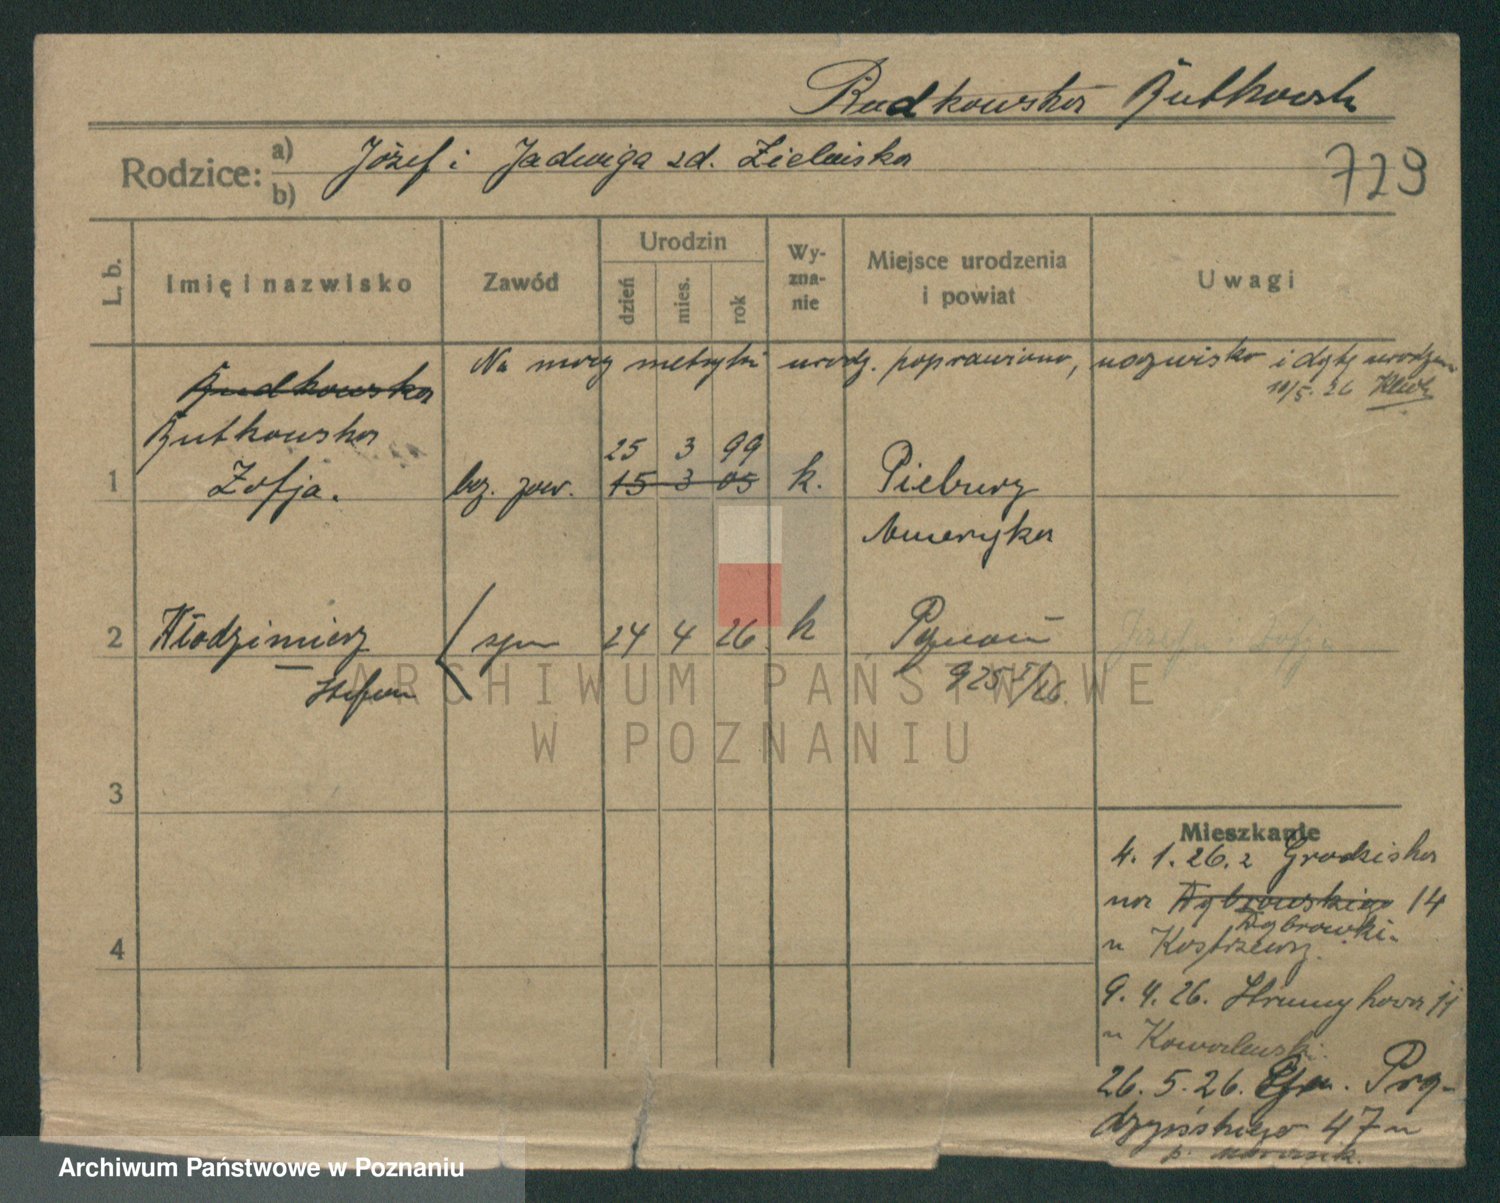 Rudkowska Rutkowsk
Rodzice: a) b) Józef i Jadwiga zd. Zielińska
729
L. b. Imię i nazwisko Zawód Urodzin dzień mies. rok Wyznanie Miejsce urodzenia i powiat Uwagi
Na mocy metryki urodz. poprawiono, nazwisko i datę urodzen.
10/5. 26
Rudkowska
Rutkowska
25 3 99
1 Zofja. bez. zaw. 15 3 05 k. Pieburg
Ameryka
2 Włodzimierz syn 24 4 26 k Poznań
Stefan 925 V/26
Józef i Zofja
3
4
Mieszkanie
4. 1. 26. z Grodziska
na Dąbrowskiego 14
Dąbrowski.
u Kostrzewy.
9. 4. 26. Strumykowa 11
u Kowalewski.
26. 5. 26. Prą-
dzyńskiego 47 u
p.
ARCHIWUM PAŃSTWOWE
W POZNANIU
Archiwum Państwowe w Poznaniu